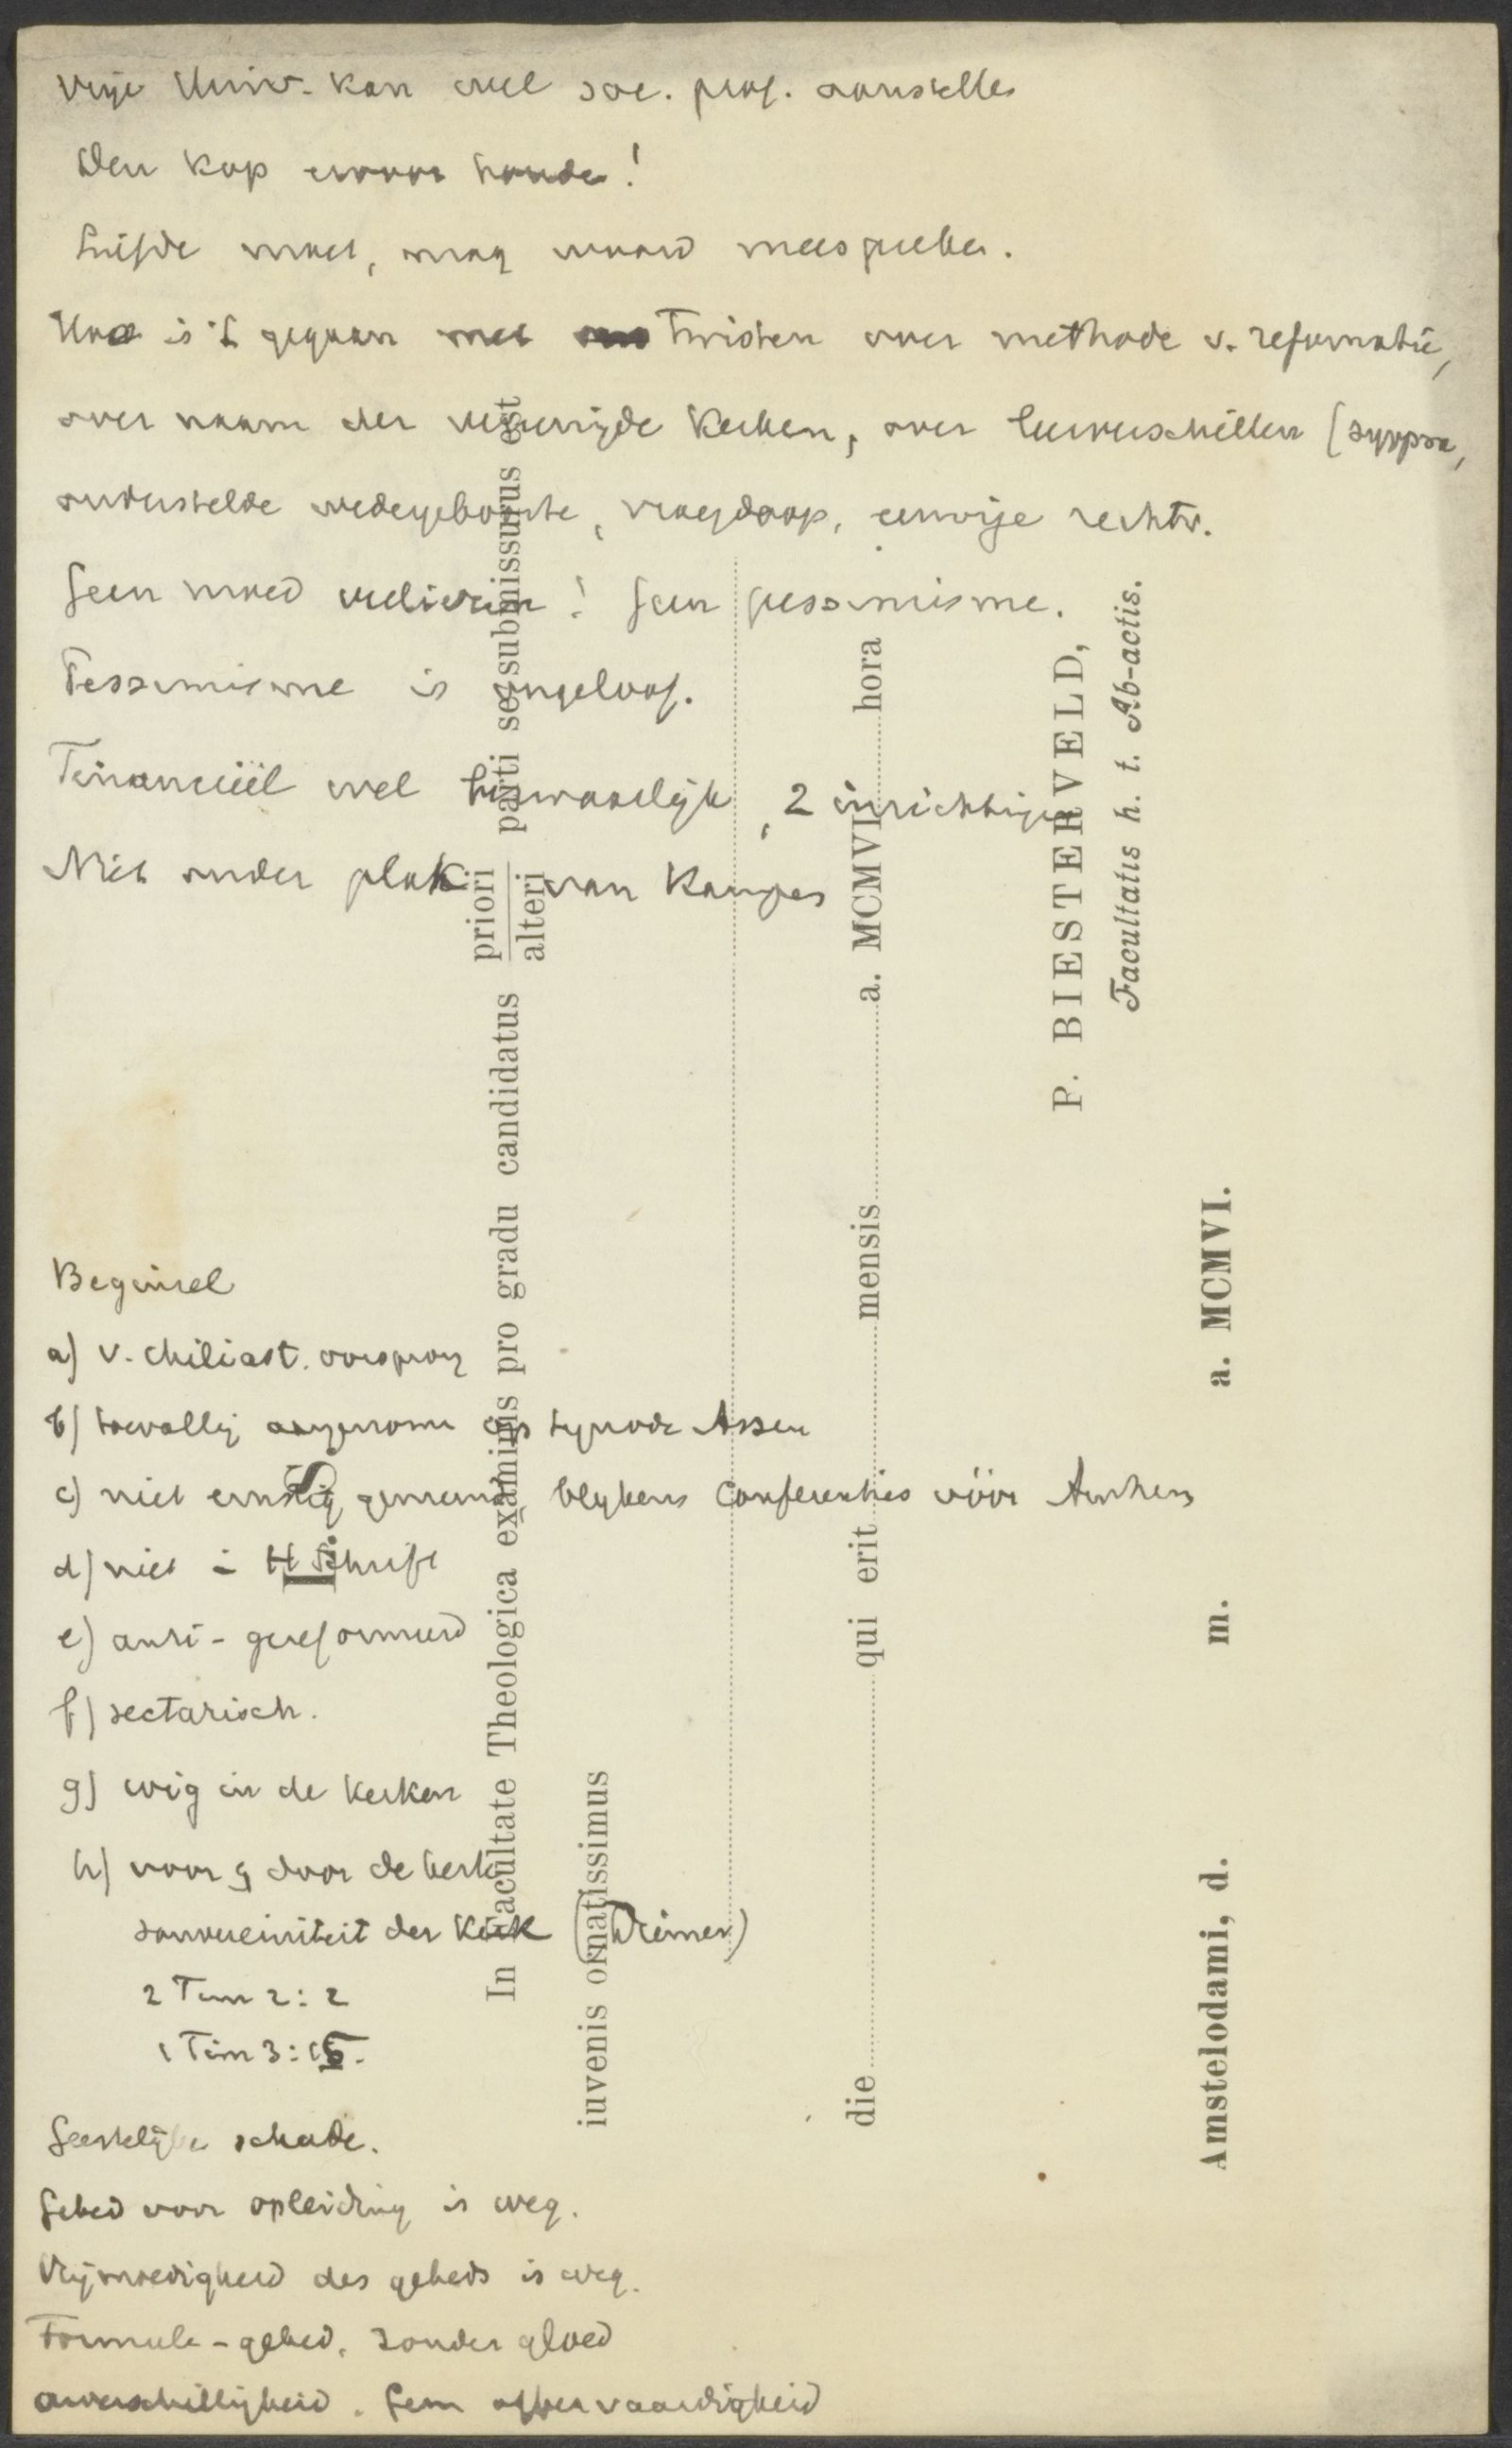 Vrije Univ. kan wel soc. prof. aanstellen
Den kop ervoor houden!
Liefde moet, mag woord meespreken.
Hoe is 't gegaan met twisten over methode v. reformatie,
over naam der vereenigde Kerken, over leerverschillen (supra,
onderstelde wedergeboorte, vroegdoop, eeuwige rechtv.
Geen moed verliezen! Geen pessimisme.
Pessimisme is ongeloof.
Financiëel wel bezwaarlijk, 2 inrichtingen
Niet onder plak van Kampen
Beginsel
a) v. chiliast. oorsprong
b) toevallig aangenomen op synode Assen
c) niet ernstig gemeend, blijkens Conferenties vóór Arnhem
d) niet in H Schrift
e) anti-gereformeerd
f) sectarisch.
g) wig in de Kerken
h) voor & door de kerk
souvereiniteit der Kerk
2 Tim 2:2
1 Tim 3:15.
Geestelijke schade.
Gebed voor opleiding is weg.
Vrijmoedigheid des gebeds is weg.
Formule-gebed, zonder gloed
onverschilligheid. Geen offervaardigheid
In Facultate Theologica examinis pro gradu candidatus priori
alteri parti se submissurus est
iuvenis ornatissimus
die mensis a. MCMVI hora
qui erit
P. BIESTERVELD,
Facultatis h. t. Ab-actis.
Amstelodami, d. m. a. MCMVI.